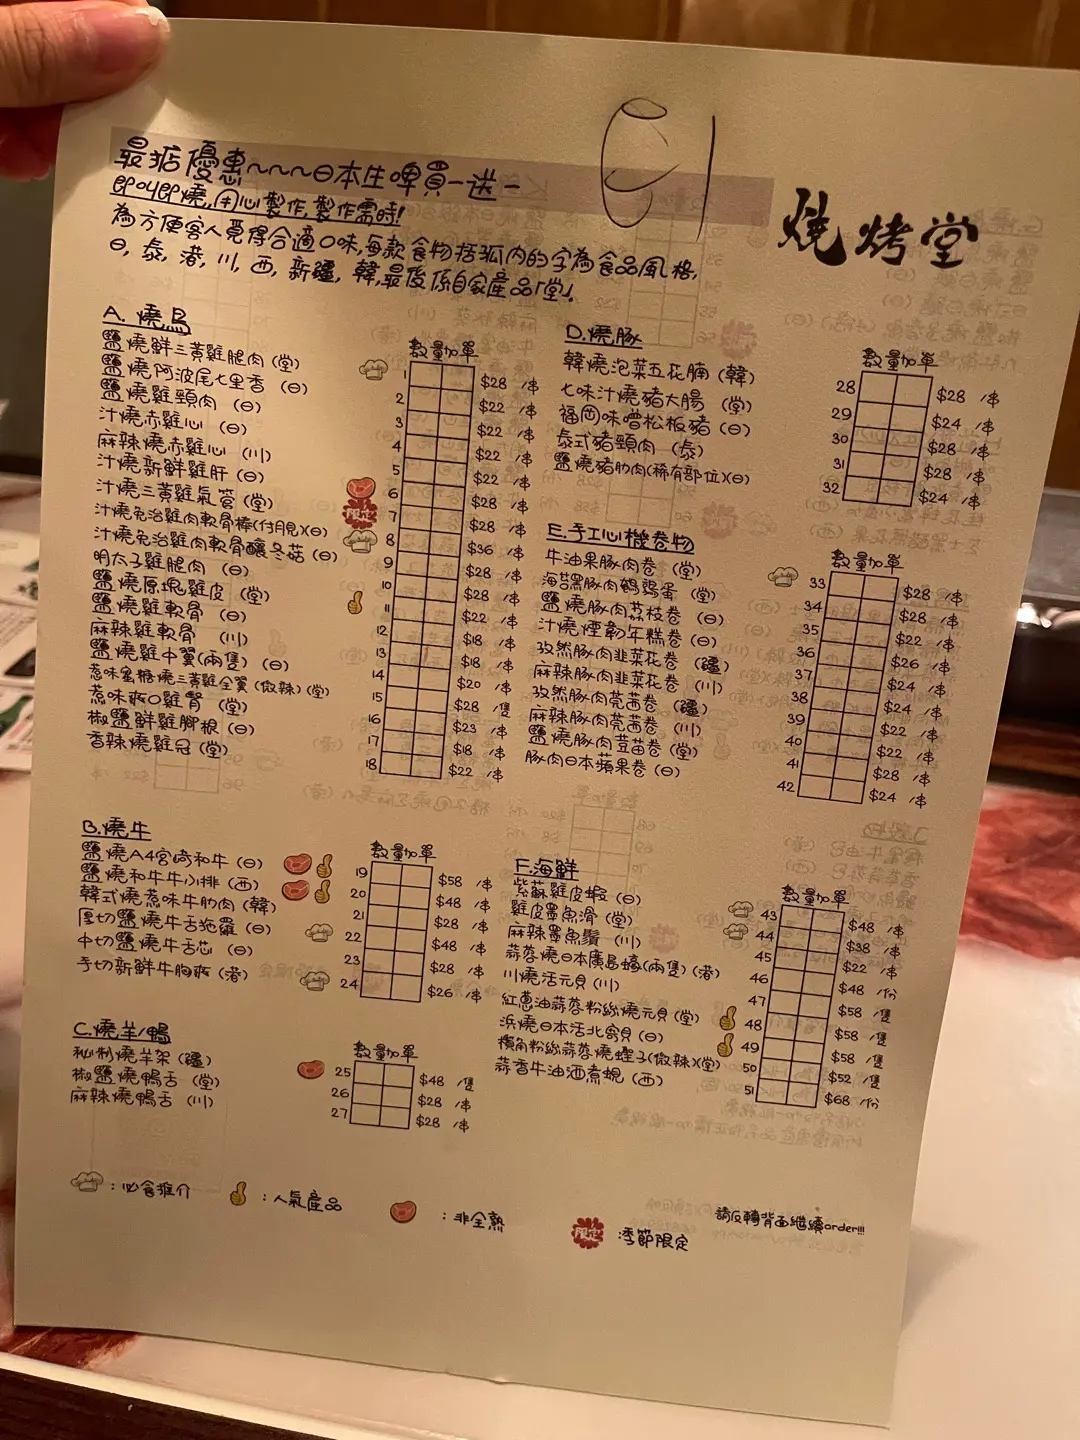 最抵優惠~~~日本生啤買一送一
即叫即燒,用心製作,製作需時!
為方便客人覓得合適口味,每款食物括弧內的字為食品風格,
日, 泰, 港, 川, 西, 新疆, 韓,最後係自家產品「堂」
燒烤堂
A. 燒鳥
數量加單
鹽燒鮮三黃雞腿肉(堂) 1 $28 /串
鹽燒阿波尾七里香 (日) 2 $22 /串
鹽燒雞頸肉 (日) 3 $22 /串
汁燒赤雞心 (日) 4 $22 /串
麻辣燒赤雞心 (川) 5 $22 /串
汁燒新鮮雞肝 (日) 6 $28 /串
汁燒三黃雞氣管(堂) 限定 7 $28 /串
汁燒免治雞肉軟骨棒(付月見)(日) 8 $36 /串
汁燒免治雞肉軟骨釀冬菇 (日) 9 $28 /串
明太子雞腿肉 (日) 10 $28 /串
鹽燒原塊雞皮 (堂) 11 $22 /串
鹽燒雞軟骨 (日) 12 $18 /串
麻辣雞軟骨 (川) 13 $18 /串
鹽燒雞中翼(兩隻) (日) 14 $20 /串
惹味蜜糖燒三黃雞全翼(微辣) (堂) 15 $28 /隻
惹味爽口雞腎 (堂) 16 $23 /串
椒鹽鮮雞腳根 (日) 17 $18 /串
香辣燒雞冠(堂) 18 $22 /串
B.燒牛
數量加單
鹽燒A4宮崎和牛 (日) 19 $58 /串
鹽燒和牛牛小排 (西) 20 $48 /串
韓式燒惹味牛肋肉 (韓) 21 $28 /串
厚切鹽燒牛舌拖羅 (日) 22 $48 /串
中切鹽燒牛舌芯 (日) 23 $28 /串
手切新鮮牛胸爽 (港) 24 $26 /串
C.燒羊/鴨
數量加單
秘制燒羊架 (疆) 25 $48 /隻
椒鹽燒鴨舌 (堂) 26 $28 /串
麻辣燒鴨舌 (川) 27 $28 /串
D.燒豚
數量加單
韓燒泡菜五花腩 (韓) 28 $28 /串
七味汁燒豬大腸 (堂) 29 $24 /串
福岡味噌松板豬 (日) 30 $28 /串
泰式豬頸肉 (泰) 31 $28 /串
鹽燒豬肋肉(稀有部位)(日) 32 $24 /串
E.手工心機卷物
數量加單
牛油果豚肉卷 (堂) 33 $28 /串
海苔黑豚肉鵪鶉蛋 (堂) 34 $28 /串
鹽燒豚肉荔枝卷 (日) 35 $22 /串
汁燒煙韌年糕卷 (日) 36 $26 /串
孜然豚肉韭菜花卷 (疆) 37 $24 /串
麻辣豚肉韭菜花卷 (川) 38 $24 /串
孜然豚肉芫茜卷 (疆) 39 $22 /串
麻辣豚肉芫茜卷 (川) 40 $22 /串
鹽燒豚肉荳苗卷 (堂) 41 $28 /串
豚肉日本蘋果卷 (日) 42 $24 /串
F.海鮮
數量加單
紫蘇雞皮蝦 (日) 43 $48 /串
雞皮墨魚滑 (堂) 44 $38 /串
麻辣墨魚鬚 (川) 45 $22 /串
蒜蓉燒日本廣島蠔(兩隻) (港) 46 $48 /份
川燒活元貝 (川) 47 $58 /隻
紅蔥油蒜蓉粉絲燒元貝 (堂) 48 $58 /隻
浜燒日本活北寄貝 (日) 49 $58 /隻
欖角粉絲蒜蓉燒蟶子(微辣)(堂) 50 $52 /隻
蒜香牛油酒煮蜆 (西) 51 $68 /份
:必食推介 :人氣產品 :非全熟 限定 :季節限定
請反轉背面繼續order!!!